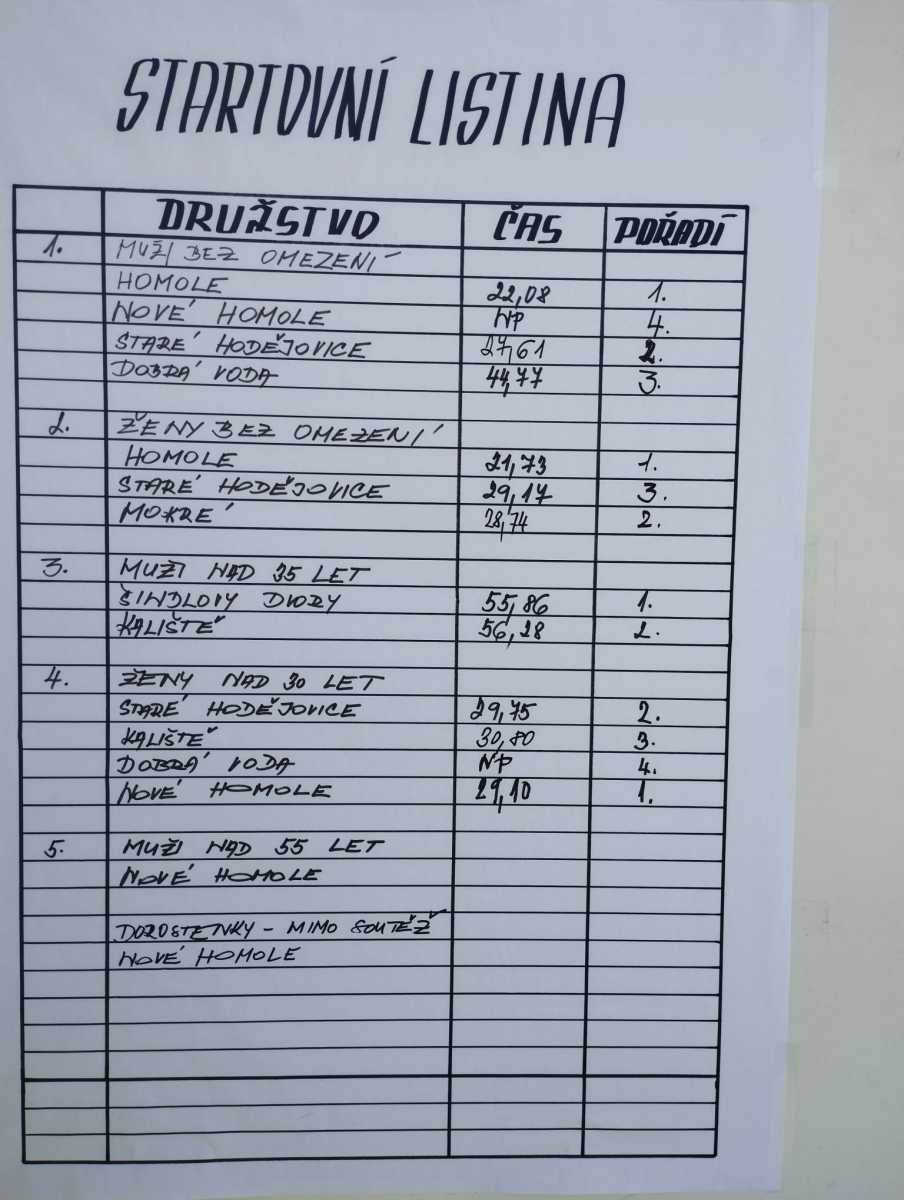 STARTOVNÍ LISTINA
DRUŽSTVO ČAS POŘADÍ
1. MUŽI BEZ OMEZENÍ
HOMOLE 22,08 1.
NOVÉ HOMOLE NP 4.
STARÉ HODĚJOVICE 27,61 2.
DOBRÁ VODA 44,77 3.
2. ŽENY BEZ OMEZENÍ
HOMOLE 21,73 1.
STARÉ HODĚJOVICE 29,17 3.
MOKRÉ 28,74 2.
3. MUŽI NAD 35 LET
ŠINDLOVY DVORY 55,86 1.
KALIŠTĚ 56,28 2.
4. ŽENY NAD 30 LET
STARÉ HODĚJOVICE 29,75 2.
KALIŠTĚ 30,80 3.
DOBRÁ VODA NP 4.
NOVÉ HOMOLE 29,10 1.
5. MUŽI NAD 55 LET
NOVÉ HOMOLE
DOROSTENKY - MIMO SOUTĚŽ
NOVÉ HOMOLE